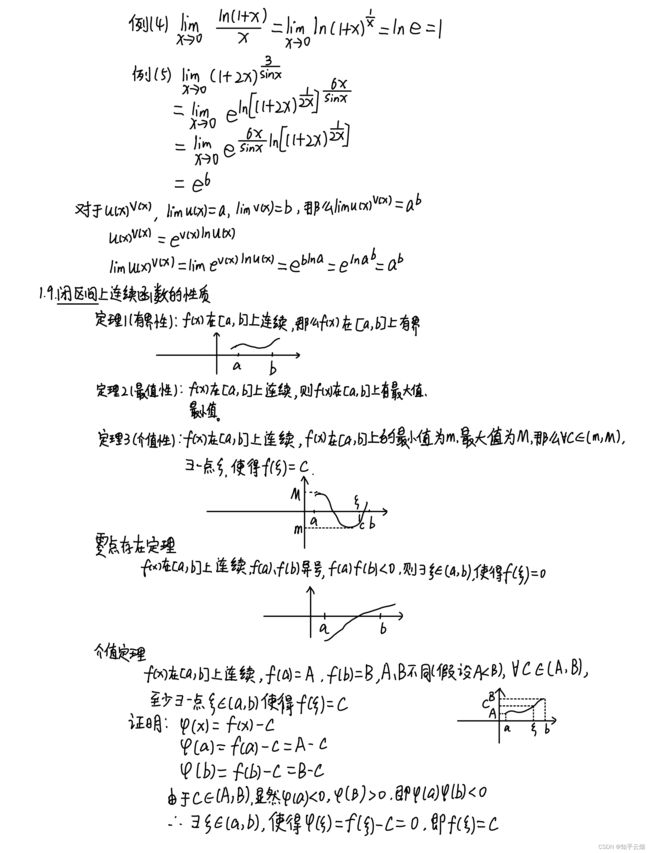 例(4) lim x→0 ln(1+x)/x = lim x→0 ln(1+x)^(1/x) = ln e = 1
例(5) lim x→0 (1+2x)^(3/sinx)
= lim x→0 e^(ln[(1+2x)^(1/2x)]^(6x/sinx))
= lim x→0 e^(6x/sinx ln[(1+2x)^(1/2x)])
= e^6
对于u(x)^v(x), lim u(x)=a, lim v(x)=b, 那么lim u(x)^v(x)=a^b
u(x)^v(x) = e^(v(x) ln u(x))
lim u(x)^v(x) = lim e^(v(x) ln u(x)) = e^(b ln a) = e^(ln a^b) = a^b
1.9.闭区间上连续函数的性质
定理1(有界性): f(x)在[a,b]上连续,那么f(x)在[a,b]上有界
a b
定理2(最值性): f(x)在[a,b]上连续,则f(x)在[a,b]上有最大值、
最小值。
定理3(介值性): f(x)在[a,b]上连续, f(x)在[a,b]上的最小值为m,最大值为M,那么∀C∈(m,M),
∃一点ξ,使得f(ξ)=C.
M
a ξ c b
m
零点存在定理
f(x)在[a,b]上连续,f(a)、f(b)异号, f(a)f(b)<0,则∃ξ∈(a,b),使得f(ξ)=0
a b
介值定理
f(x)在[a,b]上连续, f(a)=A, f(b)=B, A、B不同(假设A<B), ∀C∈(A,B),
至少∃一点ξ∈(a,b)使得f(ξ)=C
B
C
A
a ξ b
证明: φ(x)=f(x)-C
φ(a)=f(a)-C=A-C
φ(b)=f(b)-C=B-C
由于C∈(A,B),显然φ(a)<0, φ(B)>0.即φ(a)φ(b)<0
∴ ∃ξ∈(a,b),使得φ(ξ)=f(ξ)-C=0,即f(ξ)=C
CSDN @知乎云烟